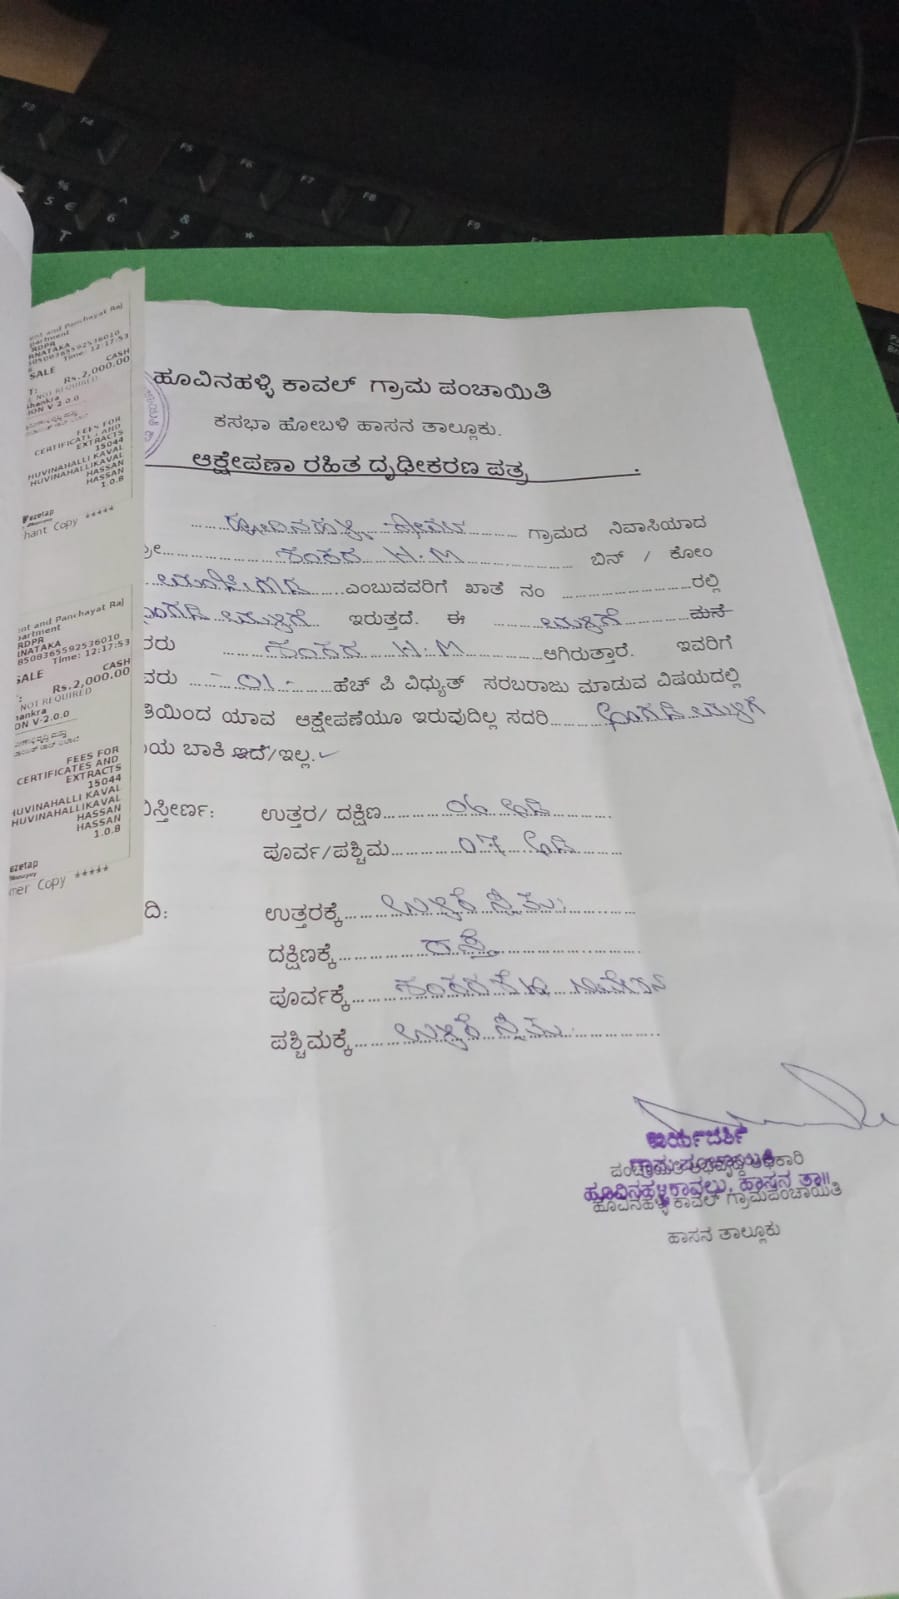 F3
F4
F5
F6
F7
F8
F9
%
5 €
^
6
&
7
*
T
ent and Panchayat Raj
partment
RDPR
RNATAKA
8508365592536010
Time: 12:17:53
SALE CASH
T: Rs.2,000.00
NOT REQUIRED
hankra
ION V-2.0.0
FEES FOR
CERTIFICATES AND
EXTRACTS
15044
HUVINAHALLI KAVAL
HUVINAHALLIKAVAL
HASSAN
HASSAN
1.0.B
ezetap
hant Copy *****
nt and Panchayat Raj
artment
RDPR
NATAKA
8508365592536010
Time: 12:17:53
SALE CASH
Rs.2,000.00
NOT REQUIRED
hankra
ON V-2.0.0
FEES FOR
CERTIFICATES AND
EXTRACTS
15044
HUVINAHALLI KAVAL
HUVINAHALLIKAVAL
HASSAN
HASSAN
1.0.B
ezetap
mer Copy *****
ಹೂವಿನಹಳ್ಳಿ ಕಾವಲ್ ಗ್ರಾಮ ಪಂಚಾಯಿತಿ
ಕಸಭಾ ಹೋಬಳಿ ಹಾಸನ ತಾಲ್ಲೂಕು.
ಆಕ್ಷೇಪಣಾ ರಹಿತ ದೃಢೀಕರಣ ಪತ್ರ
ಹೂವಿನಹಳ್ಳಿ ಕಾವಲು ಗ್ರಾಮದ ನಿವಾಸಿಯಾದ
ಶಂಕರ H.M ಬಿನ್ / ಕೋಂ
ಎಂಬುವವರಿಗೆ ಖಾತೆ ನಂ ರಲ್ಲಿ
ಅಂಗಡಿ ಮಳಿಗೆ ಇರುತ್ತದೆ. ಈ ಮಳಿಗೆ ಮನೆ
ವರು ಶಂಕರ H.M ಆಗಿರುತ್ತಾರೆ. ಇವರಿಗೆ
ವರು - 01 - ಹೆಚ್ ಪಿ ವಿಧ್ಯುತ್ ಸರಬರಾಜು ಮಾಡುವ ವಿಷಯದಲ್ಲಿ
ತಿಯಿಂದ ಯಾವ ಆಕ್ಷೇಪಣೆಯೂ ಇರುವುದಿಲ್ಲ ಸದರಿ ಅಂಗಡಿ ಮಳಿಗೆ
ಯ ಬಾಕಿ ಇದೆ/ಇಲ್ಲ.
ಸ್ತೀರ್ಣ: ಉತ್ತರ/ ದಕ್ಷಿಣ 06 ಅಡಿ
ಪೂರ್ವ/ಪಶ್ಚಿಮ 07 ಅಡಿ
ದಿ: ಉತ್ತರಕ್ಕೆ ಉಳಿಕೆ ಸ್ವತ್ತು
ದಕ್ಷಿಣಕ್ಕೆ ರಸ್ತೆ
ಪೂರ್ವಕ್ಕೆ
ಪಶ್ಚಿಮಕ್ಕೆ ಉಳಿಕೆ ಸ್ವತ್ತು
ಕಾರ್ಯದರ್ಶಿ
ಗ್ರಾಮ ಪಂಚಾಯಿತಿ
ಹೂವಿನಹಳ್ಳಿಕಾವಲು, ಹಾಸನ ತಾ||
ಹೂವಿನಹಳ್ಳಿ ಕಾವಲ್ ಗ್ರಾಮಪಂಚಾಯಿತಿ
ಹಾಸನ ತಾಲ್ಲೂಕು